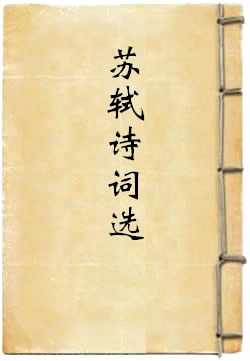 苏轼诗词选